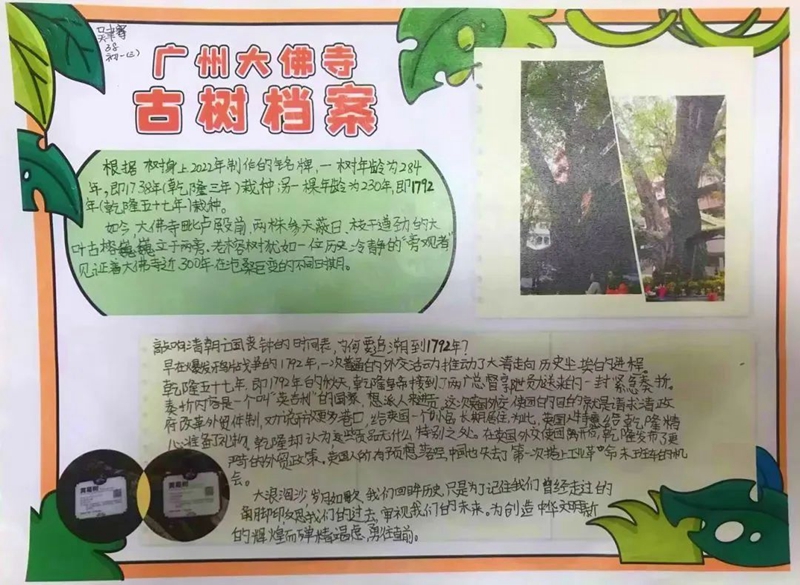 初一(2)
38
广州大佛寺
古树档案
根据树身上2022年制作的铭牌，一树年龄为284
年，即1738年(乾隆三年)栽种，另一棵年龄为230年，即1792
年(乾隆五十七年)栽种。
如今大佛寺毗卢殿前，两株参天蔽日、枝干遒劲的大
叶古榕巍巍立于两旁，老榕树犹如一位历史冷静的“旁观者”
见证着大佛寺近300年在沧桑巨变的不同日期月。
敲响清朝亡国丧钟的时间表，为何要追溯到1792年？
早在爆发鸦片战争的1792年，一次普通的外交活动推动了大清走向历史尘埃的进程。
乾隆五十七年，即1792年的秋天，乾隆皇帝接到了两广总督郭世勋送来的一封紧急奏折。
奏折内容是一个叫“英吉利”的国家，想派人来进贡。这次英国外交使团的目的就是请求清政
府改革外贸体制，对方说开放更多港口，给英国一个小岛长期居住，为此，英国人给乾隆精
心准备了礼物，乾隆却认为这些贡品无什么特别之处。在英国外交使团离开后，乾隆发布了更
严苛的外贸政策。英国人所有预想落空，中国也失去了第一次搭上工业革命末班车的机
会。
大浪淘沙，岁月如歌，我们回眸历史，只是为了记住我们曾经走过的
脚印，反思我们的过去，审视我们的未来。为创造中华文明新
的辉煌而殚精竭虑，勇往直前。